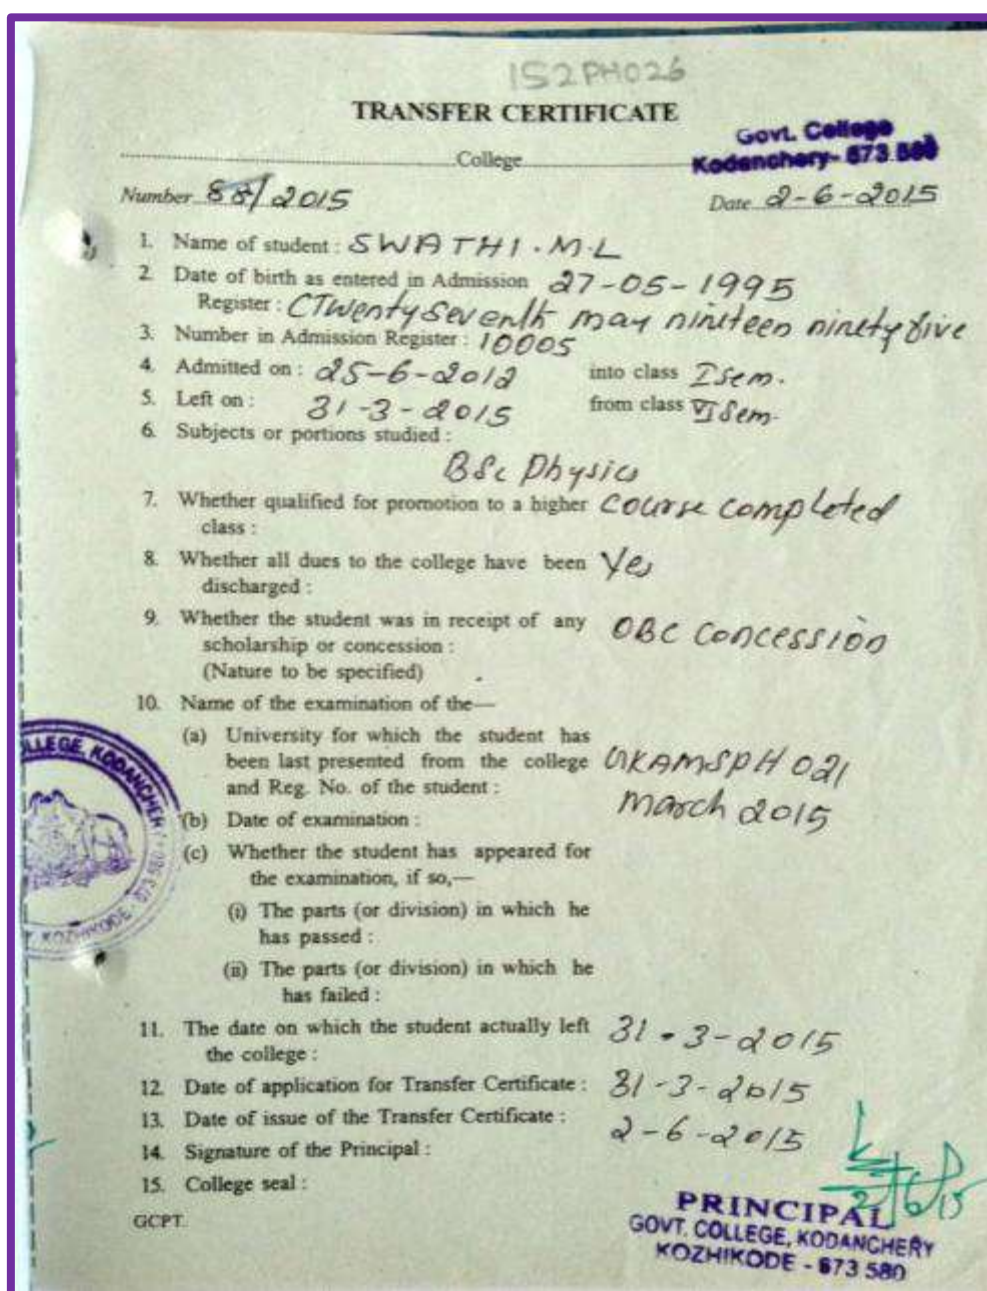 152PH026
TRANSFER CERTIFICATE
Govt. College
Kodanchery- 673 580
College
Number 88/2015
Date 2-6-2015
1. Name of student : SWATHI.M.L
2. Date of birth as entered in Admission 27-05-1995
Register : (Twentyseventh may nineteen ninetyfive
3. Number in Admission Register : 10005
4. Admitted on : 25-6-2012 into class I sem.
5. Left on : 31-3-2015 from class VI Sem.
6. Subjects or portions studied :
BSc Physics
7. Whether qualified for promotion to a higher Course completed
class :
8. Whether all dues to the college have been Yes
discharged :
9. Whether the student was in receipt of any OBC concession
scholarship or concession :
(Nature to be specified)
10. Name of the examination of the—
(a) University for which the student has
been last presented from the college UKAMSPH 021
and Reg. No. of the student :
(b) Date of examination : March 2015
(c) Whether the student has appeared for
the examination, if so,—
(i) The parts (or division) in which he
has passed :
(ii) The parts (or division) in which he
has failed :
11. The date on which the student actually left 31-3-2015
the college :
12. Date of application for Transfer Certificate : 31-3-2015
13. Date of issue of the Transfer Certificate : 2-6-2015
14. Signature of the Principal :
15. College seal :
2/6/15
GCPT.
PRINCIPAL
GOVT. COLLEGE, KODANCHERY
KOZHIKODE - 673 580
LLEGE, KODANCHERY
KOZHIKODE - 673 580